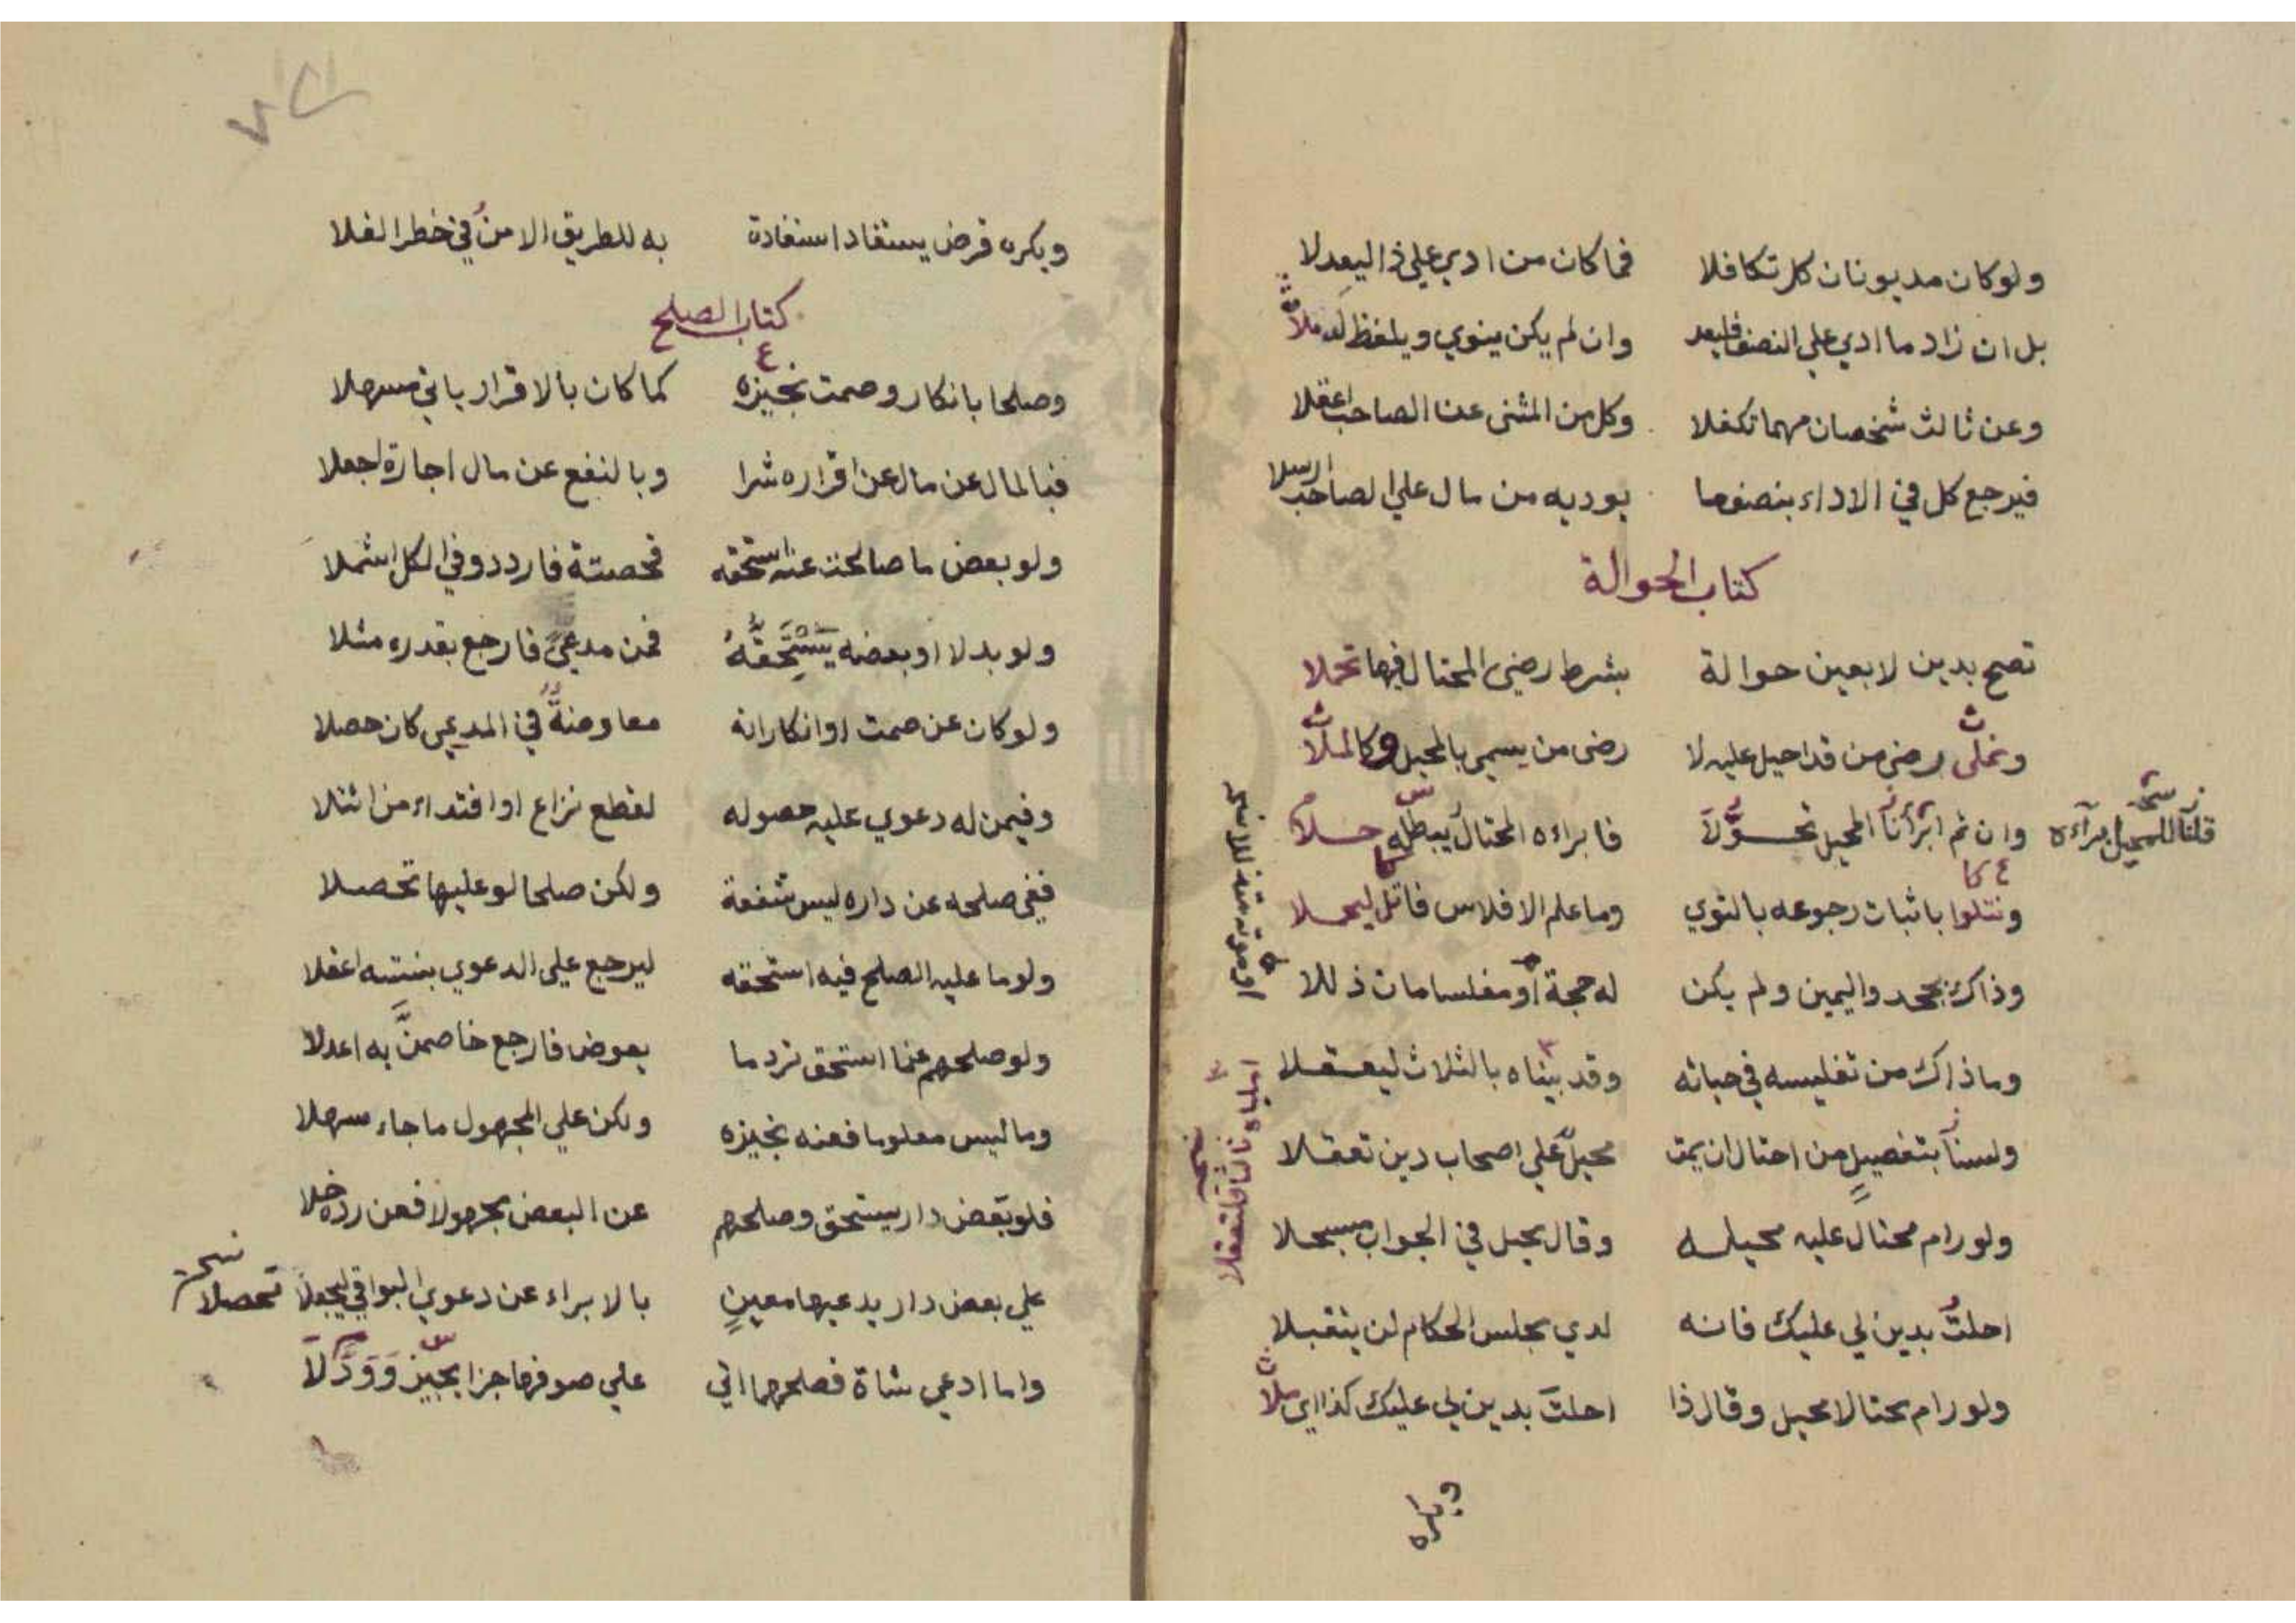 ولو كان مديونان كل تكافلا فما كان من ادي علي ذا ليعدلا
بل ان زاد ما ادي علي النصف فليعد وان لم يكن ينوي ويلفظ له ملا
وعن ثالث شخصان مهما تكفلا وكل من المثنى عن الصاحب اعقلا
فيرجع كل في الاداء بنصف ما يوديه من مال علي الصاحب ارسلا
كتاب الحوالة
تصح بدين لا بعين حوالة بشرط رضي المحتال فيها تحملا
ونملى رضي من قد احيل عليه لا رضى من يسمي بالمحيل وكالملا
وان تم ابرأنا المحيل تحوُّلاً فابراءه المحتال يبطله حلا
قلنا للمحيل براءة
ونتلوا باثبات رجوعه بالتوي وما علم الافلاس فاتل ليحملا
وذاك بجحد واليمين ولم يكن له حجة او مفلسا مات ذللا
وما ذاك من تفليسه في حياته وقد بيناه بالثلاث ليعقلا
ولسنا بتفصيل من احتال ان يمت محيل علي اصحاب دين تعقلا
ولو رام محتال عليه محيله وقال محيل في الجواب مسجلا
احلت بدين لي عليك فانه لدي مجلس الحكام لن يتقبلا
ولو رام محتالا محيل وقال ذا احلت بدين لي عليك كذا اي ملا
ويكره
ويكره قرض يستفاد استفادة به للطريق الامن في خطر الفلا
كتاب الصلح
وصلحا بانكار وصمت نجيزه كما كان بالاقرار ياتي مسهلا
فبالمال عن مال عن اقراره شرا وبالنفع عن مال اجارة اجعلا
ولو بعض ما صالحت عنه استحقه فحصته فاردد وفي الكل اشملا
ولو بدلا او بعضه يستحقه فمن مدعي فارجع بقدره مثلا
ولو كان عن صمت او انكار انه معاوضة في المدعي كان حصلا
وفيمن له دعوي عليه حصوله لقطع نزاع او افتداء من ائتلا
ففي صلحه عن داره ليس شفعة ولكن صلحا لو عليها تحصلا
ولو ما عليه الصلح فيه استحقه ليرجع علي الدعوي بنسبته اعقلا
ولو صلحهم عما استحق ترد ما بعوض فارجع خاصمن به اعدلا
وما ليس معلوما فعنه نجيزه ولكن علي المجهول ما جاء سهلا
فلو بعض دار يستحق وصلحهم عن البعض مجهولا فعن رده خلا
علي بعض دار يدعيها معين بالابراء عن دعوي البواقي ليجعلا تحصلا
واما ادعي شاة فصلحهما اتي علي صوفها جزا يجيز وودلا